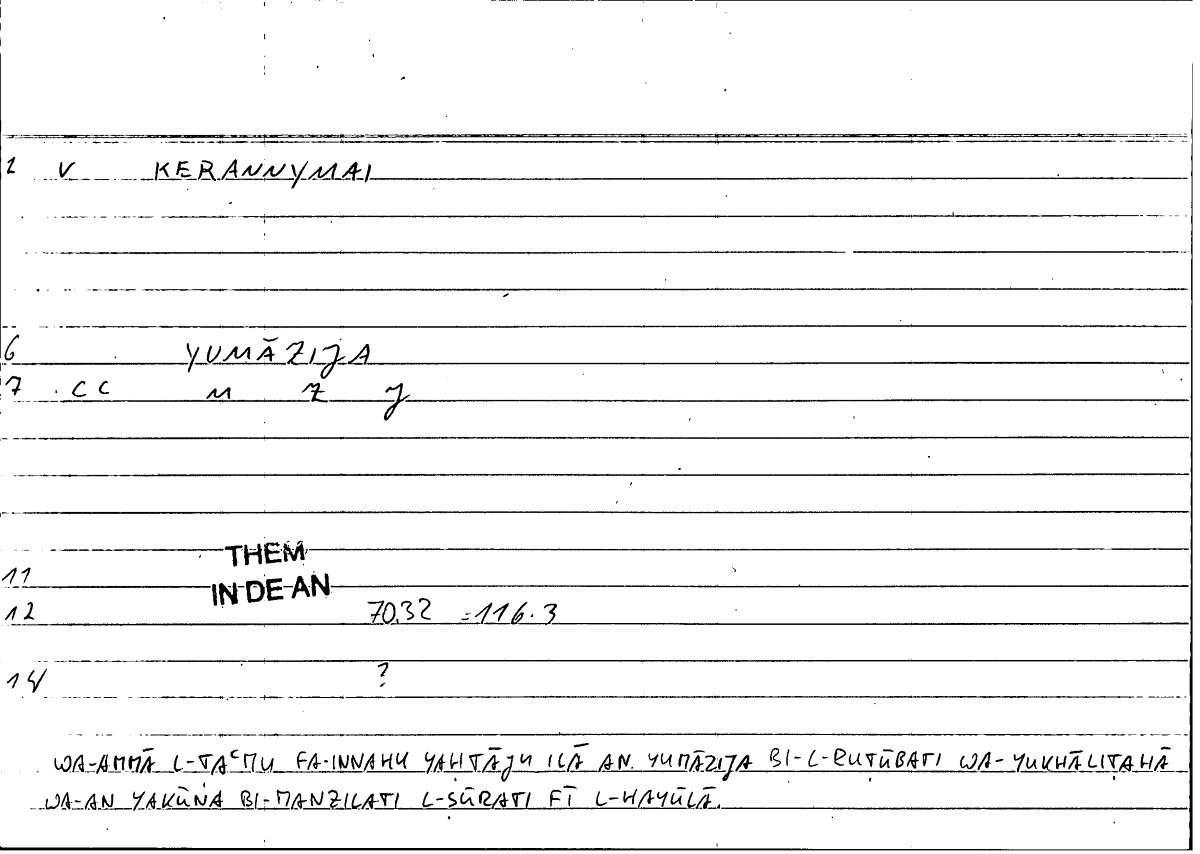 1 V KERANNYMAI
6 YUMĀZIJA
7 CC M Z J
THEM
11 IN DE AN
12 70.32 = 116.3
14 ?
WA-AMMĀ L-TAʿMU FA-INNAHU YAHTĀJU ILĀ AN YUMĀZIJA BI-L-RUTŪBATI WA-YUKHĀLITAHĀ
WA-AN YAKŪNA BI-MANZILATI L-SŪRATI FĪ L-HAYŪLĀ.